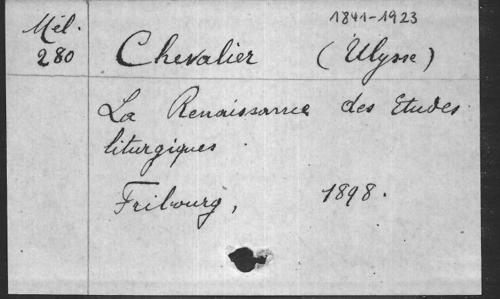 Mél. 280
1841-1923
Chevalier (Ulysse)
La Renaissance des Etudes
liturgiques.
Fribourg, 1898.